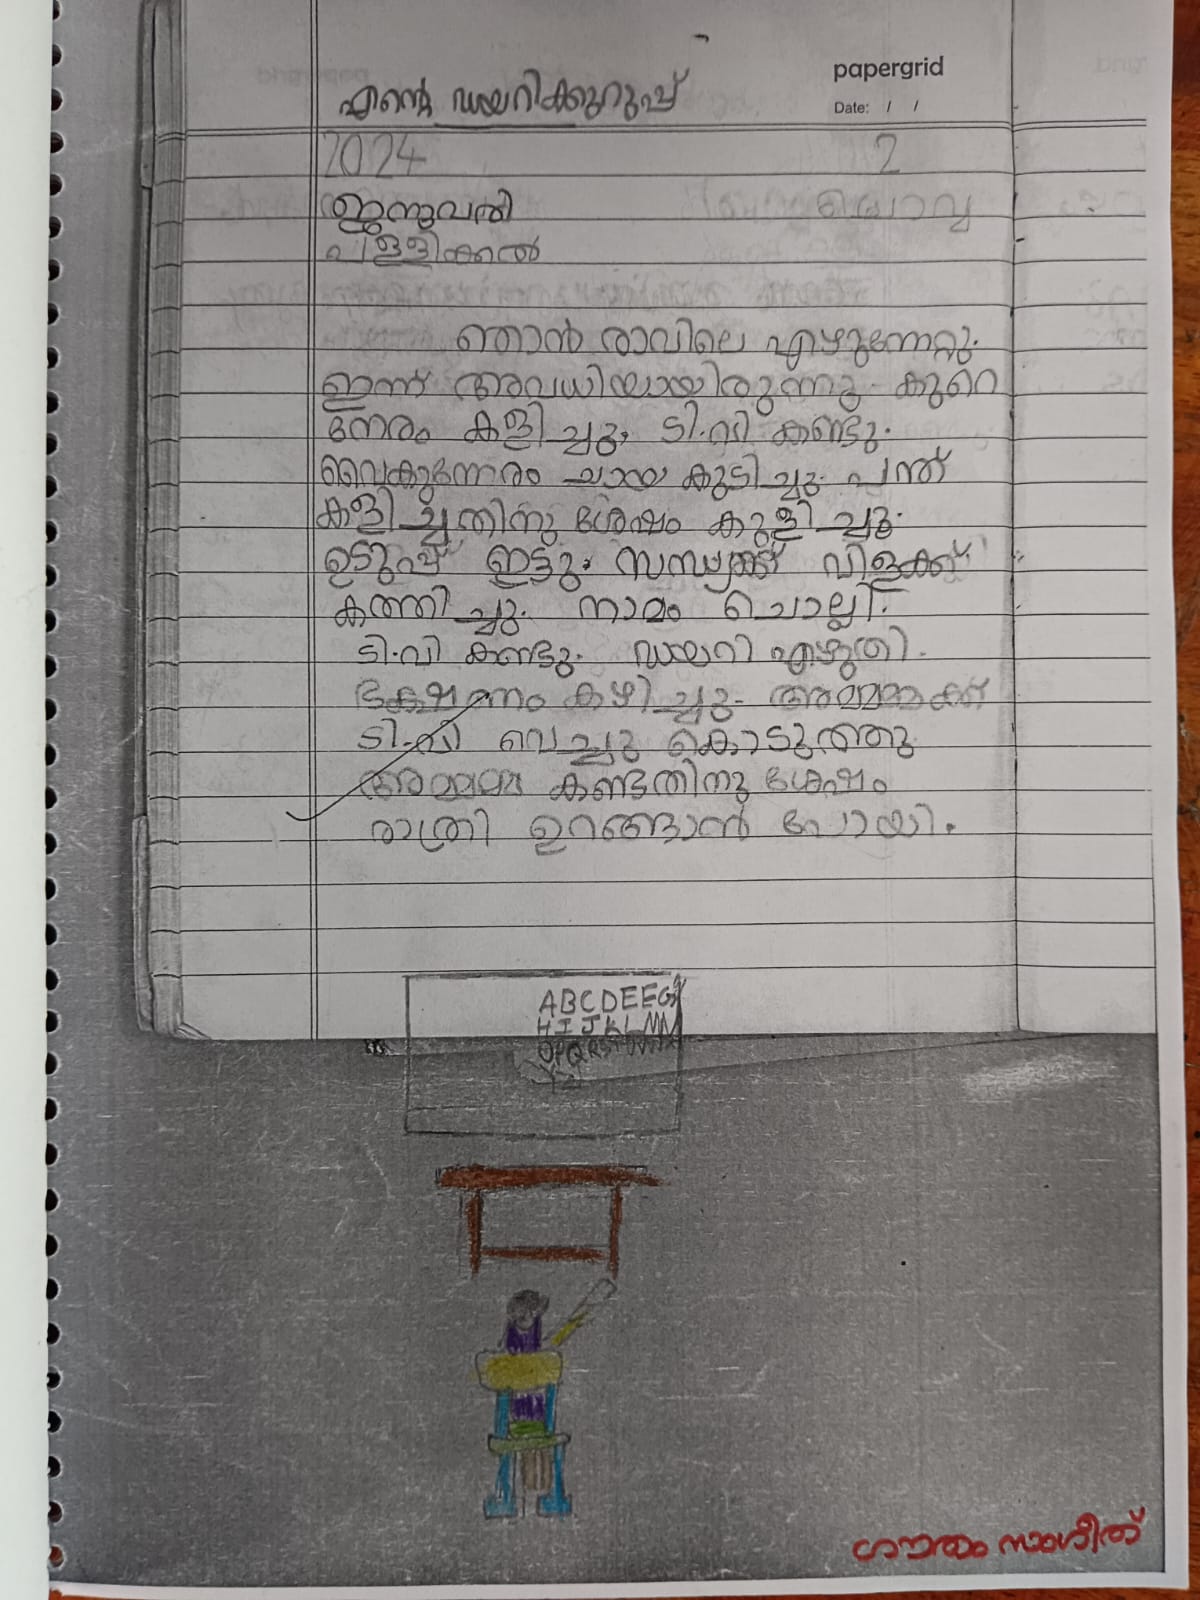 papergrid
Date: / /
എന്റെ ഡയറിക്കുറുപ്പ്
2024 2
ജനുവരി ചൊവ്വ
പള്ളിക്കൽ
ഞാൻ രാവിലെ എഴുന്നേറ്റു.
ഇന്ന് അവധിയായിരുന്നു. കുറെ
നേരം കളിച്ചു. ടി.വി കണ്ടു.
വൈകുന്നേരം ചായ കുടിച്ചു. പന്ത്
കളിച്ചതിനു ശേഷം കുളിച്ചു.
ഉടുപ്പ് ഇട്ടു. സന്ധ്യക്ക് വിളക്ക്
കത്തിച്ചു. നാമം ചൊല്ലി.
ടി.വി കണ്ടു. ഡയറി എഴുതി.
ഭക്ഷണം കഴിച്ചു. അമ്മമ്മക്ക്
ടി.വി വെച്ചു കൊടുത്തു
അമ്മമ്മ കണ്ടതിനു ശേഷം
രാത്രി ഉറങ്ങാൻ പോയി.
ABCDEEG
HIJKLMN
OPQRST
ഗൗതം സംഗീത്